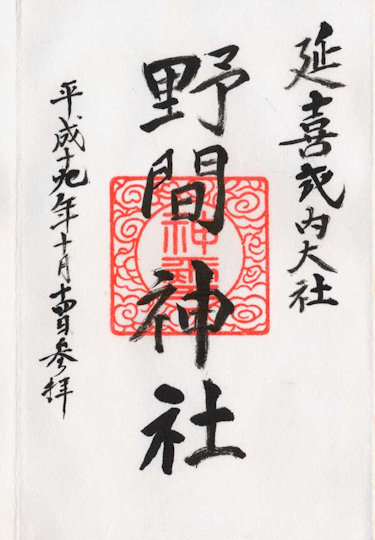 延喜式内大社
野間神社
平成十九年十月十四日参拝